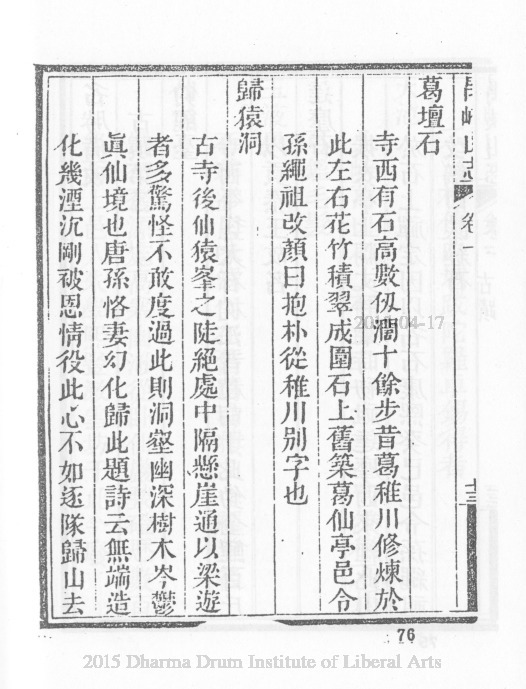 山志 卷一
十三
葛壇石
寺西有石高數仭濶十餘步昔葛稚川修煉於
此左右花竹積翠成圍石上舊築葛仙亭邑令
孫繩祖改顏曰抱朴從稚川別字也
歸猿洞
古寺後仙猿峯之陡絕處中隔懸崖通以梁遊
者多驚怪不敢度過此則洞壑幽深樹木岑鬱
眞仙境也唐孫恪妻幻化歸此題詩云無端造
化幾湮沉剛被恩情役此心不如逐隊歸山去
76
2015 Dharma Drum Institute of Liberal Arts